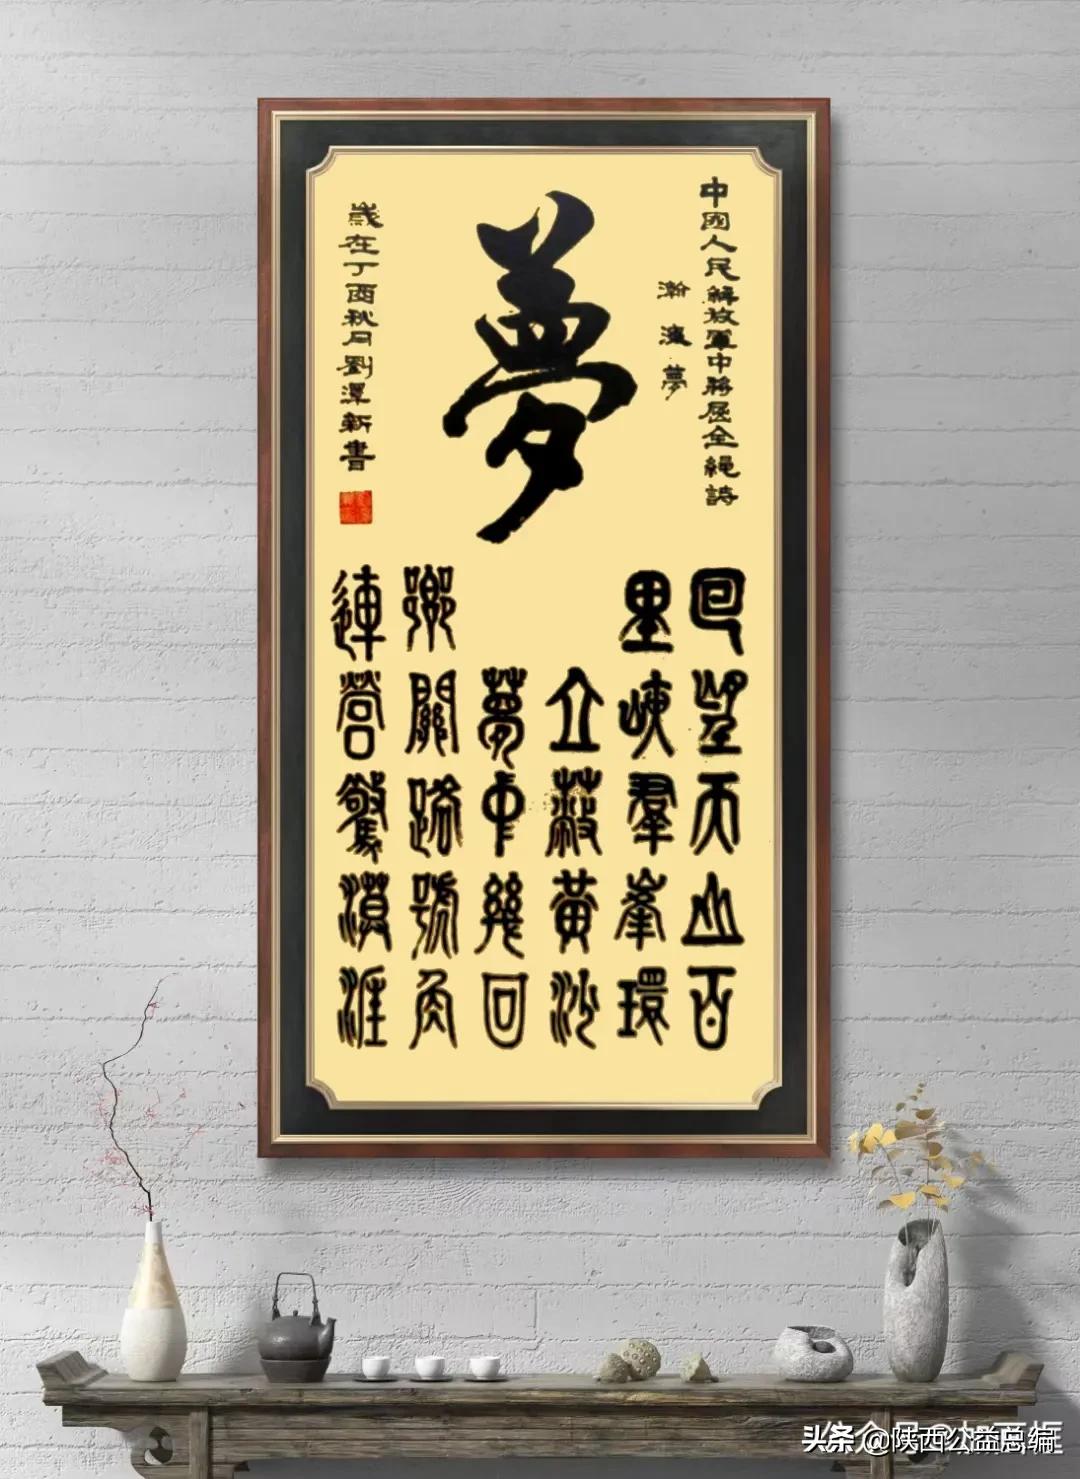 中國人民解放軍中將屈全繩詩
瀚 夢
夢
回望天山百
里峽羣峯環
立蔽黃沙
夢中幾回
關路號角
連營驚漠涯
歲在丁酉秋月劉澤新書
头条 @陕西公益总编